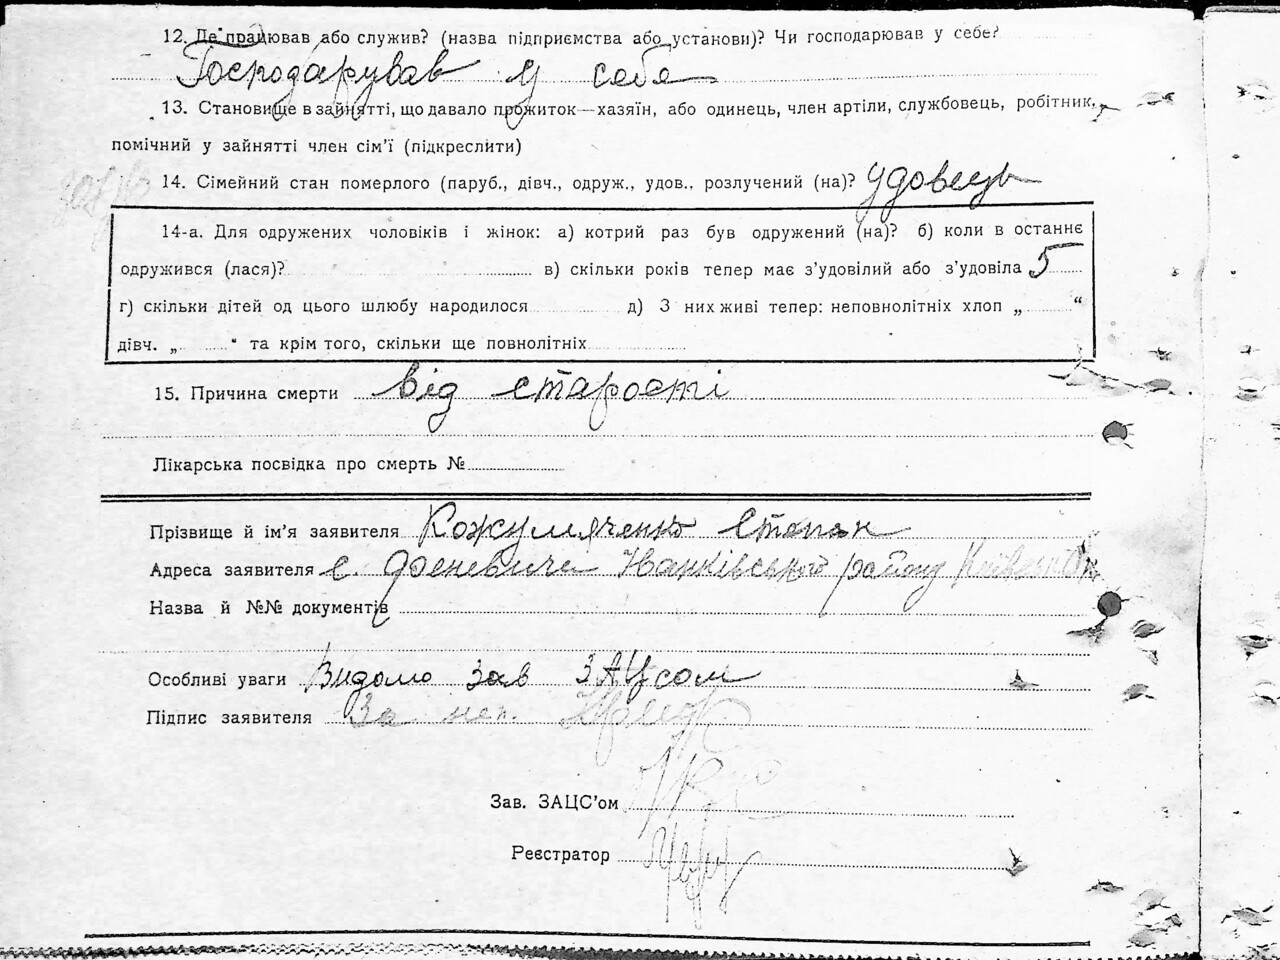 12. Де працював або служив? (назва підприємства або установи)? Чи господарював у себе?
Господарував у себе
13. Становище в зайнятті, що давало прожиток—хазяїн, або одинець, член артіли, службовець, робітник,
помічний у зайнятті член сім’ї (підкреслити)
14. Сімейний стан померлого (паруб., дівч., одруж., удов., розлучений (на)? удовець
14-а. Для одружених чоловіків і жінок: а) котрий раз був одружений (на)? б) коли в останнє
одружився (лася)? в) скільки років тепер має з’удовілий або з’удовіла 5
г) скільки дітей од цього шлюбу народилося д) З них живі тепер: неповнолітніх хлоп „ “
дівч. „ “ та крім того, скільки ще повнолітніх
15. Причина смерти від старості
Лікарська посвідка про смерть №
Прізвище й ім’я заявителя Кожумяченко Степан
Адреса заявителя с. Феневичи Іванківського району
Назва й №№ документів
Особливі уваги Видомо Зав ЗАЦсом
Підпис заявителя За неп.
Зав. ЗАЦС’ом
Реєстратор